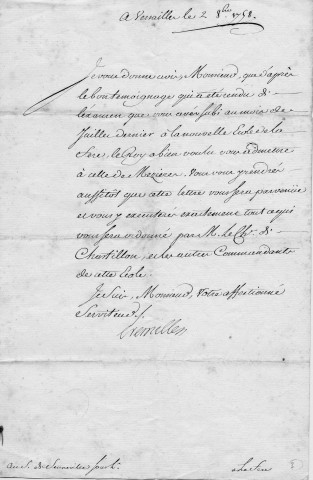 A Versailles le 2 8bre 1758.
Je vous donne avis, Monsieur, que d'après
le bon temoignage qui a eté rendu de
l'examen que vous avez subi au mois de
Juillet dernier à la nouvelle Ecole de La
Fere, le Roy a bien voulu vous admettre
à celle de Mezieres. Vous vous y rendrés
aussitost que cette lettre vous sera parvenüe
et vous y executerés exactement tout ce qui
vous sera ordonné par M. le Chr. de
Chastillon, et les autres Commandants
de cette Ecole.
Je suis, Monsieur, Votre affectionné
Serviteur.
Cremilles
Au S. de
a La Fere